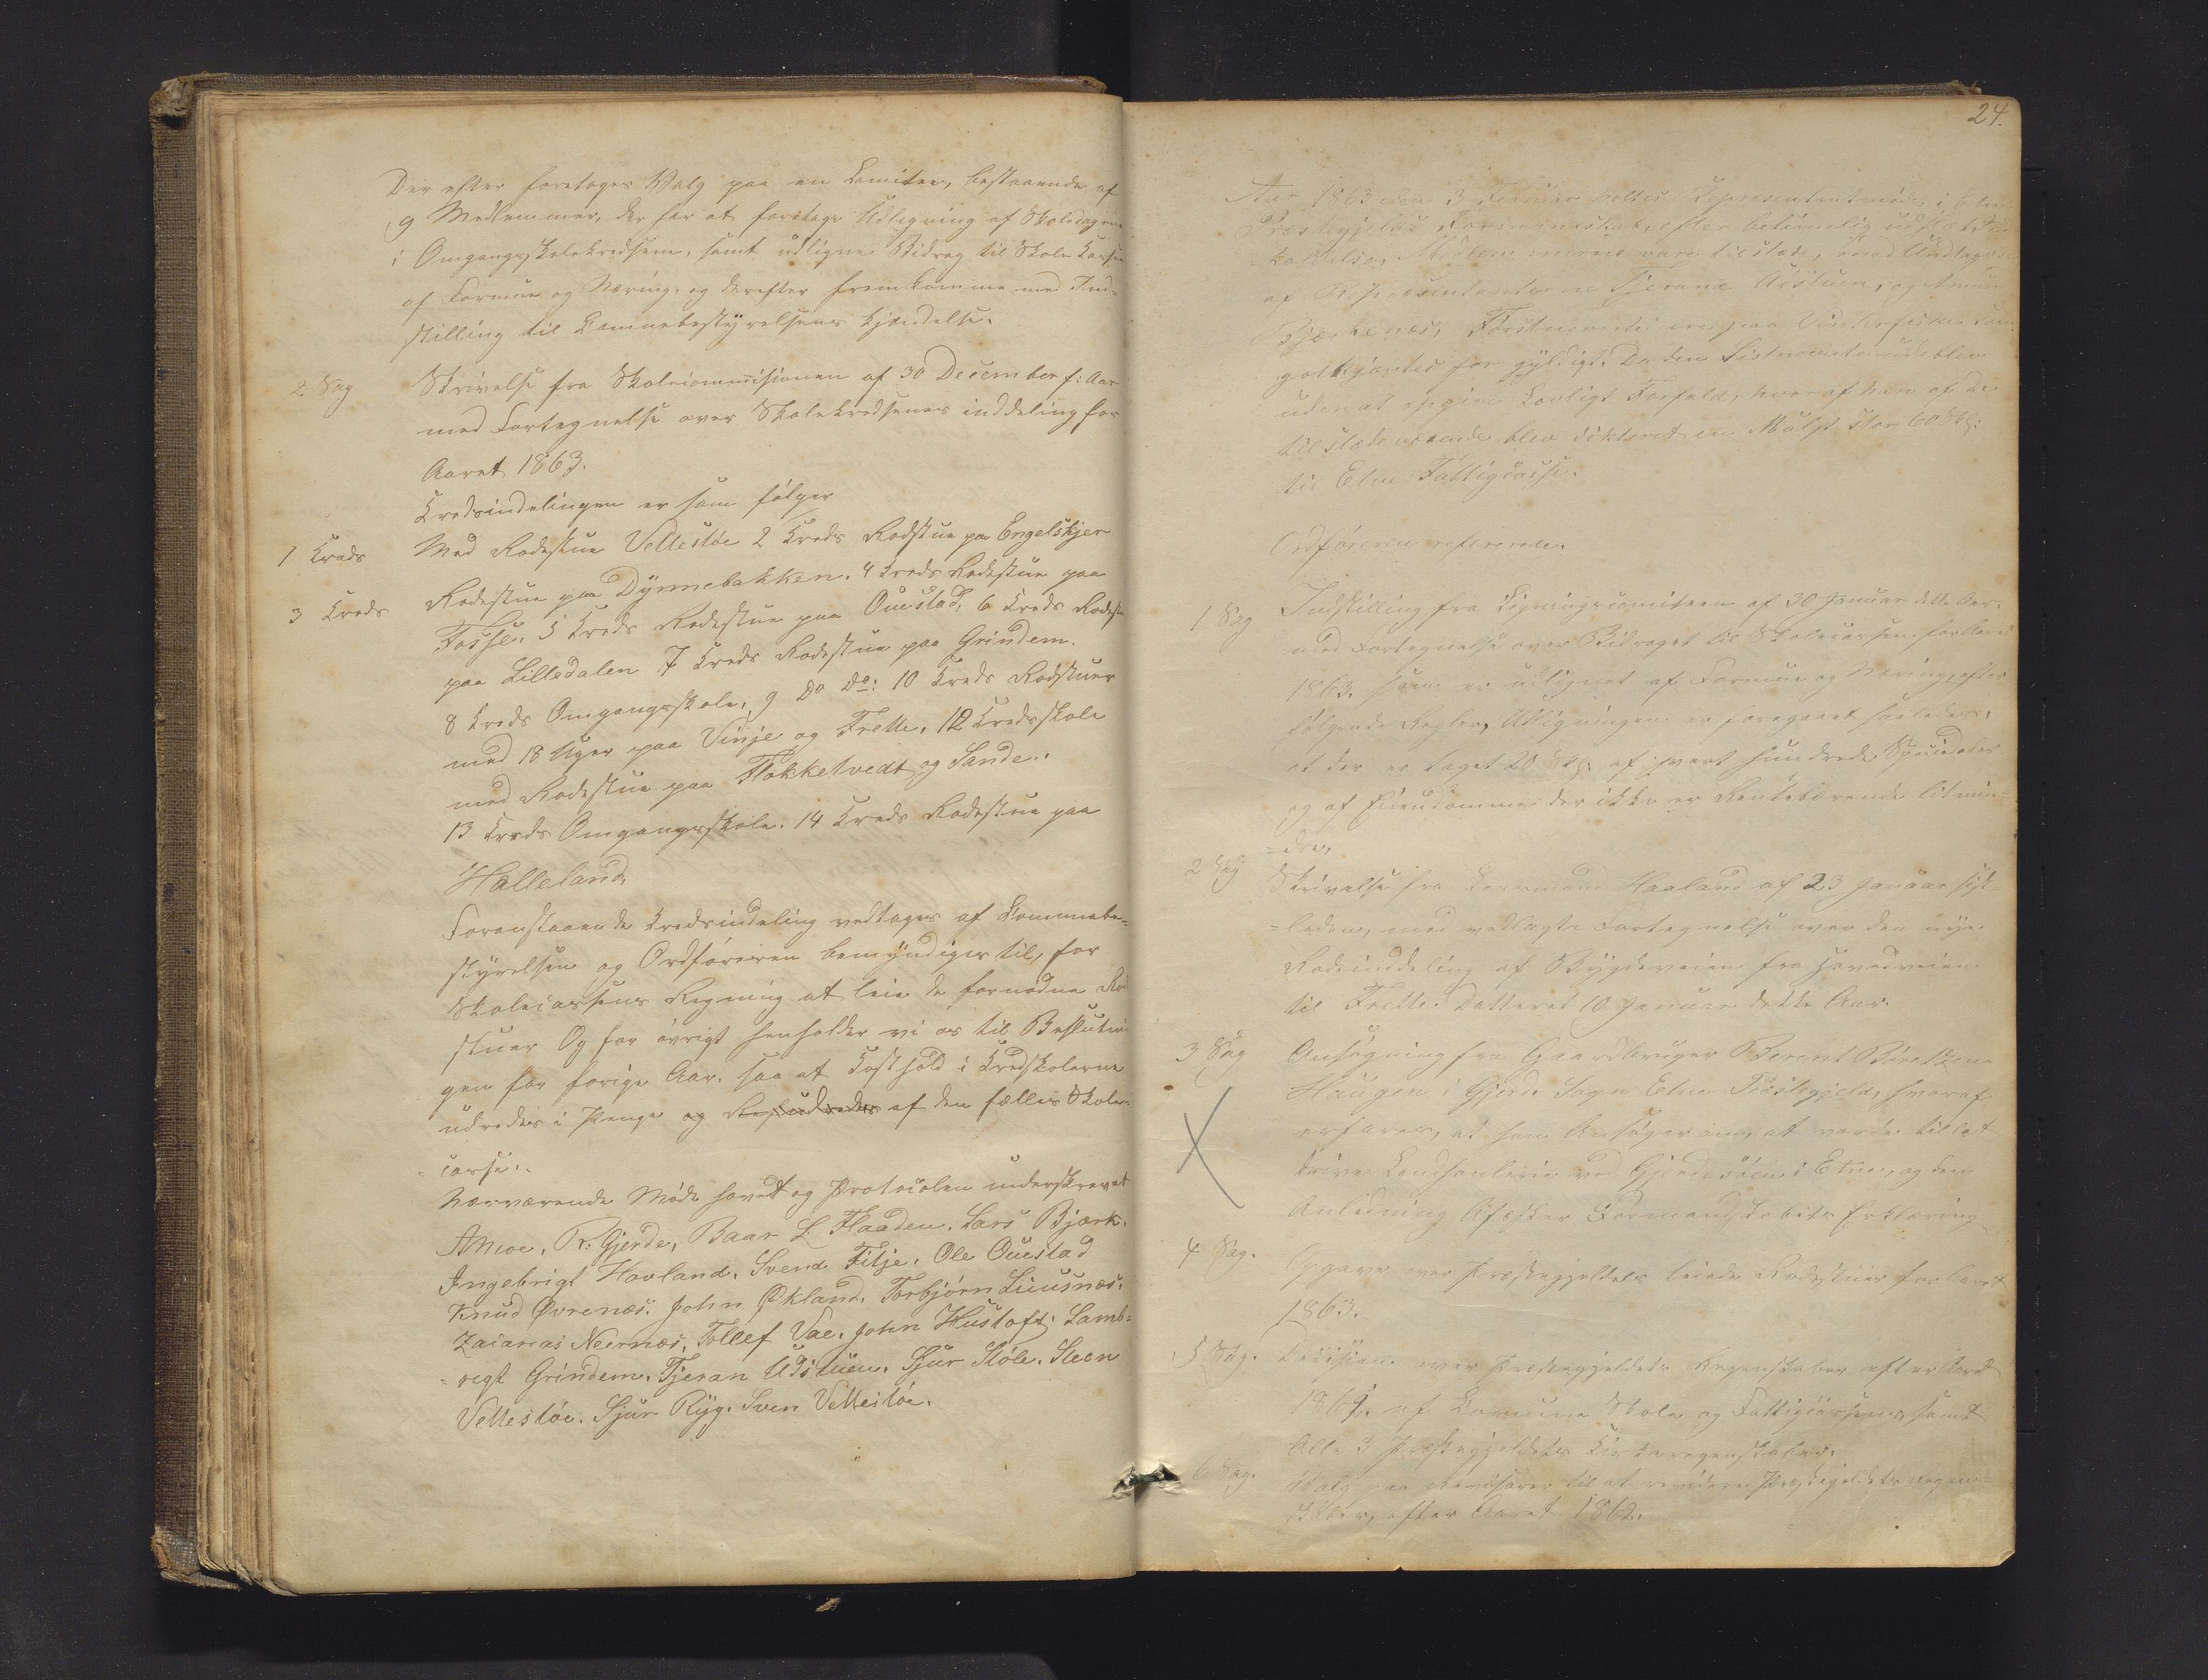 Der efter foretoges Valg paa en Comitee, bestaaende af
9 Medlemmer, der har at foretage Udligning af Skoledagene
i Omgangsskolekredsene, samt udligne Bidrag til Skole Cassen
af Formue og Næring, og derefter fremkomme med Ind=
stilling til Communebestyrelsens Kjendelse.
2 Sag Skrivelse fra Skolecommisionen af 30 December f: Aar
med Fortegnelse over Skolekredsenes inddeling for
Aaret 1863.
Kredsindelingen er som følger
1 Kreds Med Rodestue Vettestøe 2 Kreds Rodstue paa Engelskjer
3 Kreds Rodestue paa Dynnebakken. 4 Kreds Rodestue paa
Fosse. 5 Kreds Rodestue paa Ouestad, 6 Kreds Rodest
paa Lilledalen 7 Kreds Rodestue paa Grindem.
8 Kreds Omgangsskole, 9 Do Do: 10 Kreds Rodstuer
med 18 Uger paa Vinje og Frette, 12 Kredsskole
med Rodestue paa Flokketvedt og Sande.
13 Kreds Omgangsskole. 14 Kreds Rodestue paa
Halleland,
Foranstaaende Kredsindeling vedtages af Communebe=
styrelsen og Ordføreren bemyndiges til, for
Skolecassens Regning at leie de fornødne Ro
stuer Og for øvrigt henholder vi os til Beslutnin
gen for forige Aar. saa at Kosthold i Kredsskolerne
udredes i Penge og af den fælles Skole=
casse.
Nærværende Møde hævet og Protocolen underskrevet
AMoe, R. Gjerde, Baar L. Flaaden. Lars Bjørk.
Ingebrigt Hovland. Svend Fitje. Ole Ouestad
Knud Øvrenæs. John Økland. Torbjørn Liiusnæs.
Zacarias Neernæs. Tollef Vae. John Hustoft. Lamb=
=regt Grindem. Tjeran Udstuen. Sjur Støle. Steen
Vettestøe. Sjur Ryg. Sven Vettestøe.
24.
Aar 1863 den 3 Februar holtes Representantmøde i Etne
Præstegjelds Formandskab, efter betimelig udstædt Ind
kaldelse, Medlemmerne vare tilstæde, med Undtagelse
af Representanterne Tjerand Udstuen, og
Bjørkenæs, Førstnevnte er paa Vinterfiske som
gotkjøntes for gyldigt. Da den Sistnevnte udeblev
uden at opgive Lovligt Forfald, hvoraf han af de
tilstædeværende blev dikteret en Mulkt stor 60 Skl:
til Etne Fattigcasse.
Ordføreren refererede.
1 Sag Indstilling fra Ligningscomiteen af 30 Januar dette Aar.
med Fortegnelse over Bidraget til Skolecassen for Aaret
1863. som er udlignet af Formue og Næring, efter
følgende Regler, Udligningen er foregaaet saaledes,
at der er taget 20 Skl. af hvert hundrede Speciedaler
og af Eiendomme der ikke er Rentebærende lit min=
=dre,
2 Sag Skrivelse fra Lensmand Haaland af 23 Januar sist
=leden, med vedlagte Fortegnelse over den nye
Rodeinddeling af Bygdeveien fra Hovedveien
til Frette. Datteret 10 Januar dette Aar.
3 Sag Ansøgning fra Gaardbruger Berent
Haugen i Gjerde Sogn Etne Præstegjeld, hvoraf
erfares, at han Ansøger om, at vorde tillat
drive Landhandleri ved Gjerdesøen i Etne, og den
Anledning Afæsker Formandskabets Erklæring
4 Sag. Opgave over Præstegjeldets leiede Rodestuer for Aaret
1863.
5 Sag. Decision over Præstegjeldets Regnskaber efter Aaret
1861. af Comune Skole og Fattigcassens, samt
Alle 3 Præstegjeldets Kirkeregenskaber.
6 Sag. Valg paa Revisorer til at revidere Præstegjeldets regen=
skaber, efter Aaret 1862.